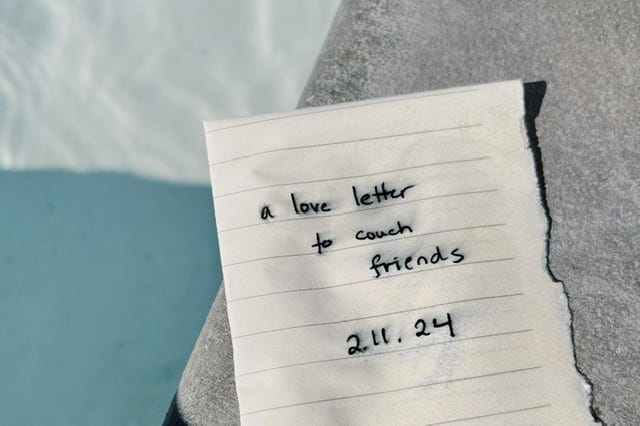 a love letter
to couch
friends
2.11.24